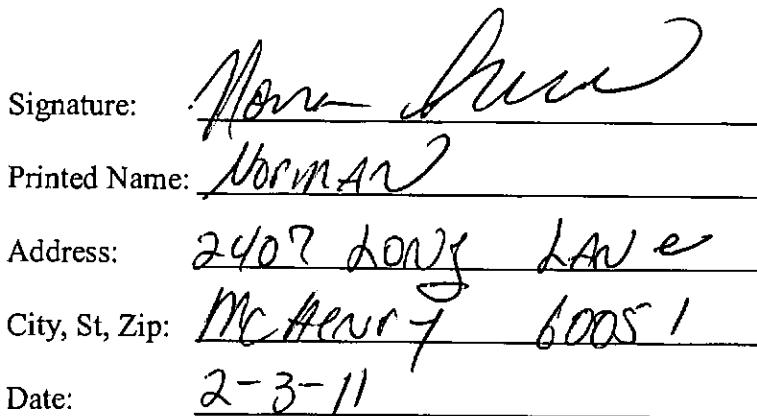 Signature: Norman
Printed Name: Norman
Address: 2407 Long Lane
City, St, Zip: McHenry 60051
Date: 2-3-11